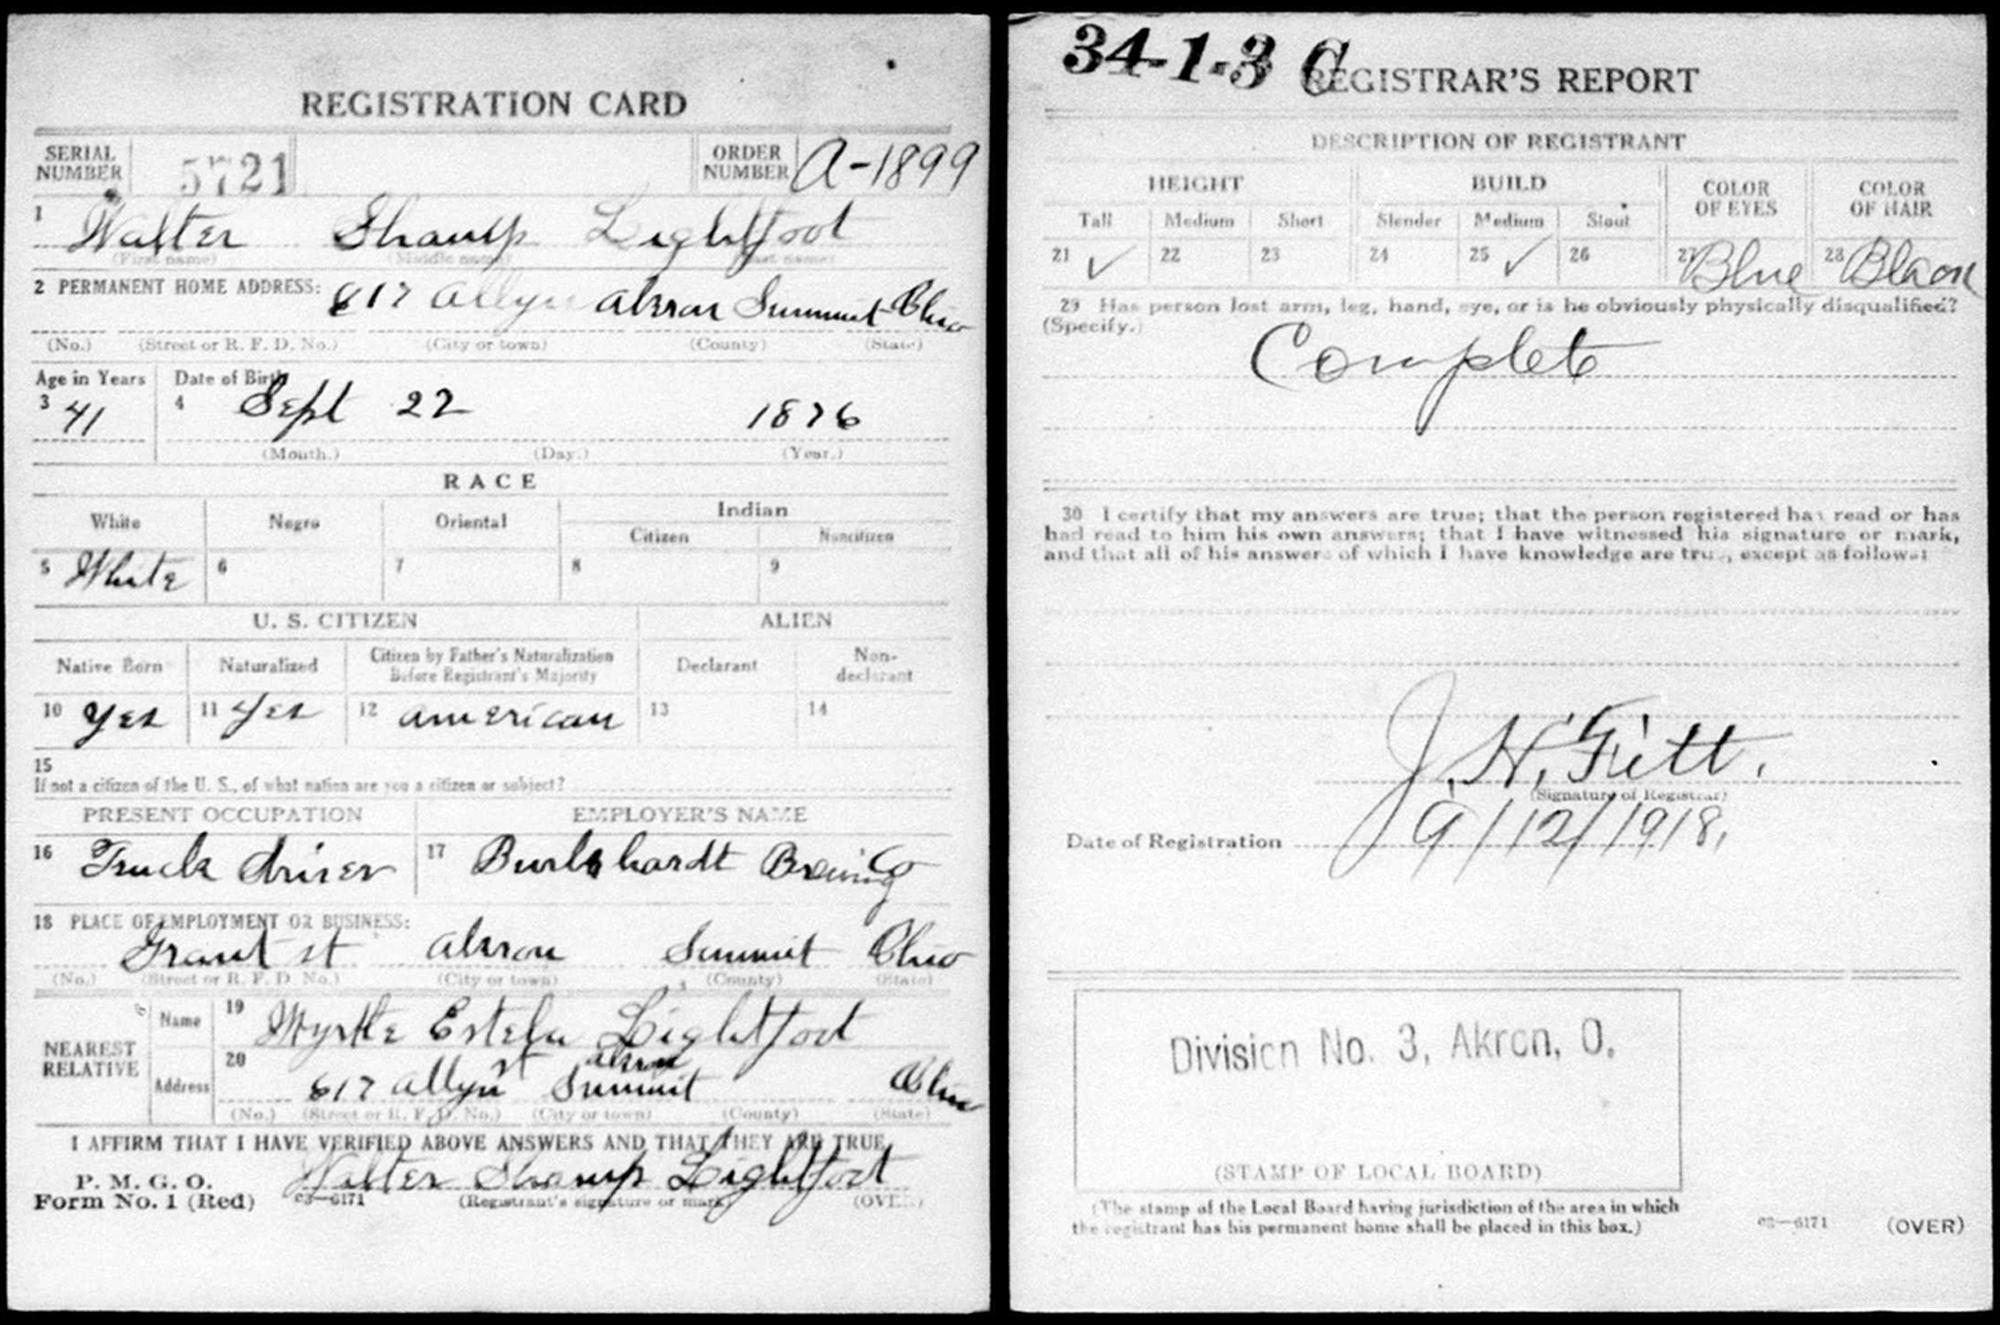 REGISTRATION CARD
SERIAL NUMBER 5721 ORDER NUMBER A-1899
1 Walter Shamp Lightfoot
(First name) (Middle name) (Last name)
2 PERMANENT HOME ADDRESS: 617 Allyn Akron Summit Ohio
(No.) (Street or R. F. D. No.) (City or town) (County) (State)
Age in Years Date of Birth
3 41 4 Sept 22 1876
(Month.) (Day.) (Year.)
RACE
White Negro Oriental Indian
Citizen Noncitizen
5 White 6 7 8 9
U. S. CITIZEN ALIEN
Native Born Naturalized Citizen by Father's Naturalization Before Registrant's Majority Declarant Non-declarant
10 Yes 11 Yes 12 American 13 14
15
If not a citizen of the U. S., of what nation are you a citizen or subject?
PRESENT OCCUPATION EMPLOYER'S NAME
16 Truck driver 17 Burkhardt Brewing Co
18 PLACE OF EMPLOYMENT OR BUSINESS:
Grant st Akron Summit Ohio
(No.) (Street or R. F. D. No.) (City or town) (County) (State)
NEAREST RELATIVE
Name 19 Myrtle Estela Lightfoot
Address 20 617 Allyn st Akron Summit Ohio
(No.) (Street or R. F. D. No.) (City or town) (County) (State)
I AFFIRM THAT I HAVE VERIFIED ABOVE ANSWERS AND THAT THEY ARE TRUE
P. M. G. O.
Form No. 1 (Red) 03—6171 Walter Shamp Lightfoot
(Registrant's signature or mark) (OVER)
34-1-3 C
REGISTRAR'S REPORT
DESCRIPTION OF REGISTRANT
HEIGHT BUILD COLOR OF EYES COLOR OF HAIR
Tall Medium Short Slender Medium Stout
21 ✓ 22 23 24 25 ✓ 26 27 Blue 28 Black
29 Has person lost arm, leg, hand, eye, or is he obviously physically disqualified?
(Specify.)
Complete
30 I certify that my answers are true; that the person registered has read or has
had read to him his own answers; that I have witnessed his signature or mark,
and that all of his answers of which I have knowledge are true, except as follows:
J. H. Fitt.
(Signature of Registrar)
Date of Registration 9/12/1918,
Division No. 3, Akron, O.
(STAMP OF LOCAL BOARD)
(The stamp of the Local Board having jurisdiction of the area in which
the registrant has his permanent home shall be placed in this box.)
03—6171 (OVER)